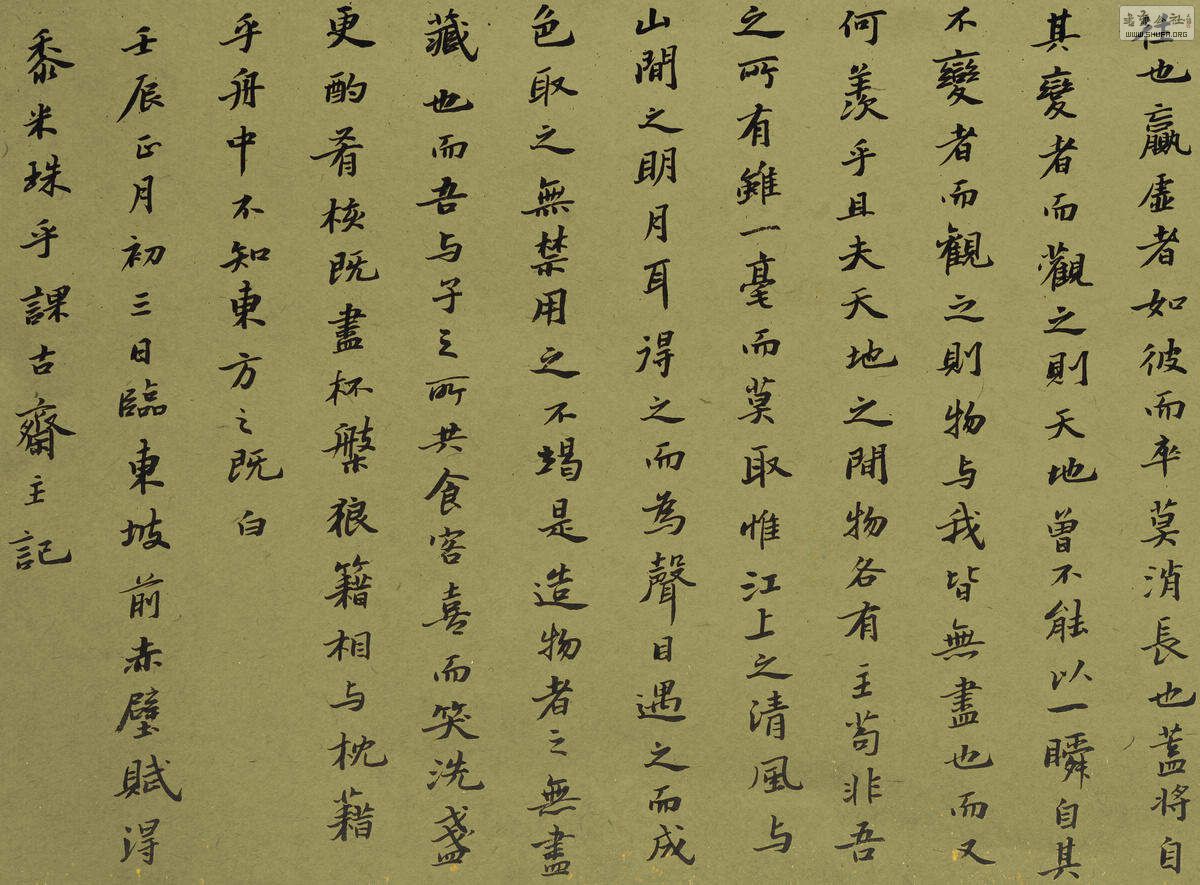 也贏虛者如彼而卒莫消長也蓋將自
其變者而觀之則天地曾不能以一瞬自其
不變者而觀之則物与我皆無盡也而又
何羨乎且夫天地之間物各有主苟非吾
之所有雖一毫而莫取惟江上之清風与
山間之明月耳得之而為聲目遇之而成
色取之無禁用之不竭是造物者之無盡
藏也而吾与子之所共食客喜而笑洗盞
更酌肴核既盡杯槃狼籍相与枕藉
乎舟中不知東方之既白
壬辰正月初三日臨東坡前赤壁賦得
黍米珠乎課古齋主記
WWW.SHUFA.ORG